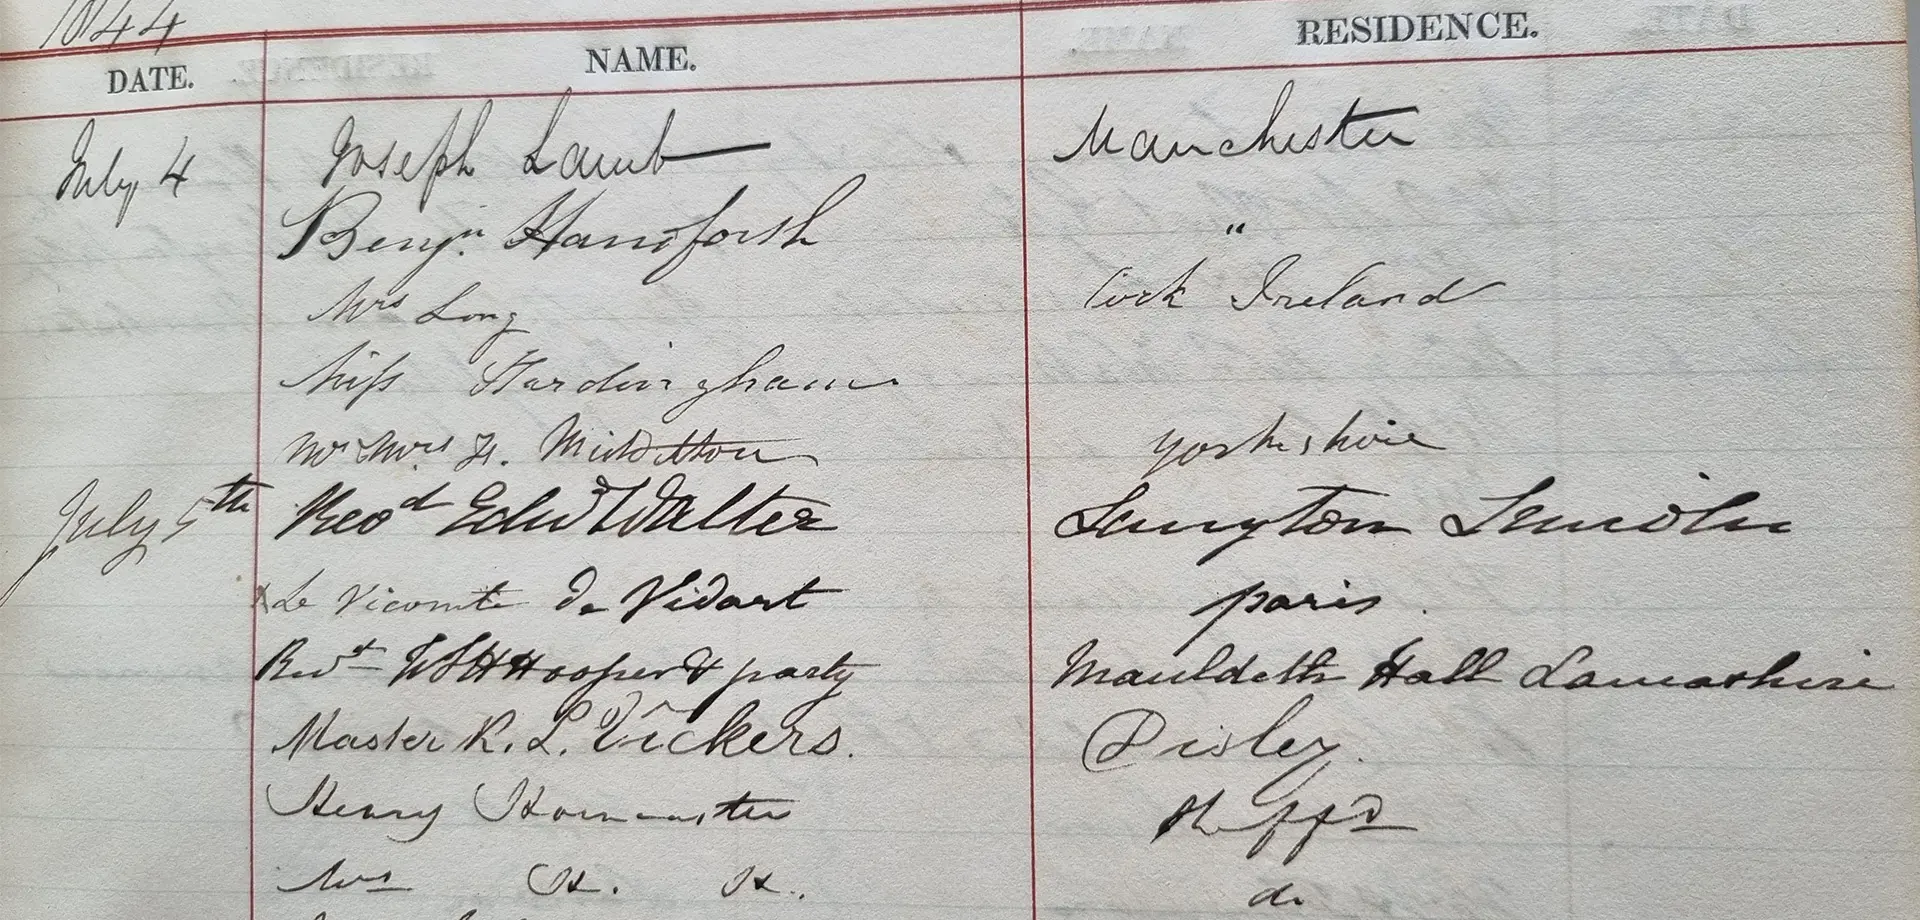 1844
DATE. NAME. RESIDENCE.
July 4 Joseph Lamb Manchester
Benjn. Handforth "
Mrs Long Cork Ireland
Miss Hardingham
Mr & Mrs H. Middleton Yorkshire
July 5th Revd Edwd Walter Langton Lincoln
x Le Vicomte de Vidart paris.
Revd Hooper & party Mauldeth Hall Lancashire
Master R. L. Vickers. Disley.
Henry Horncastle
Mrs H. H. do